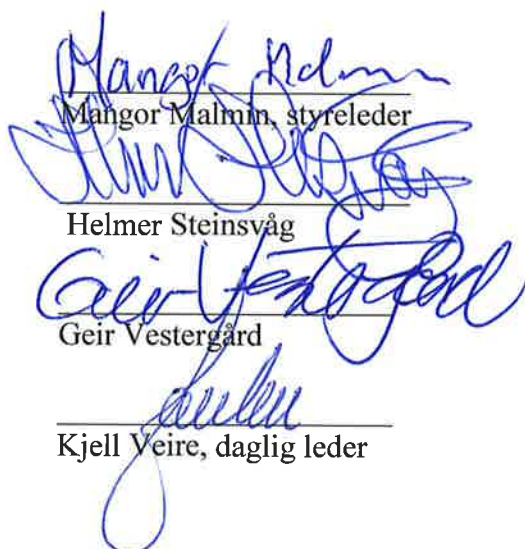 Mangor Malmin
Mangor Malmin, styreleder
Helmer Steinsvåg
Geir Vestergård
Geir Vestergård
Kjell Veire, daglig leder